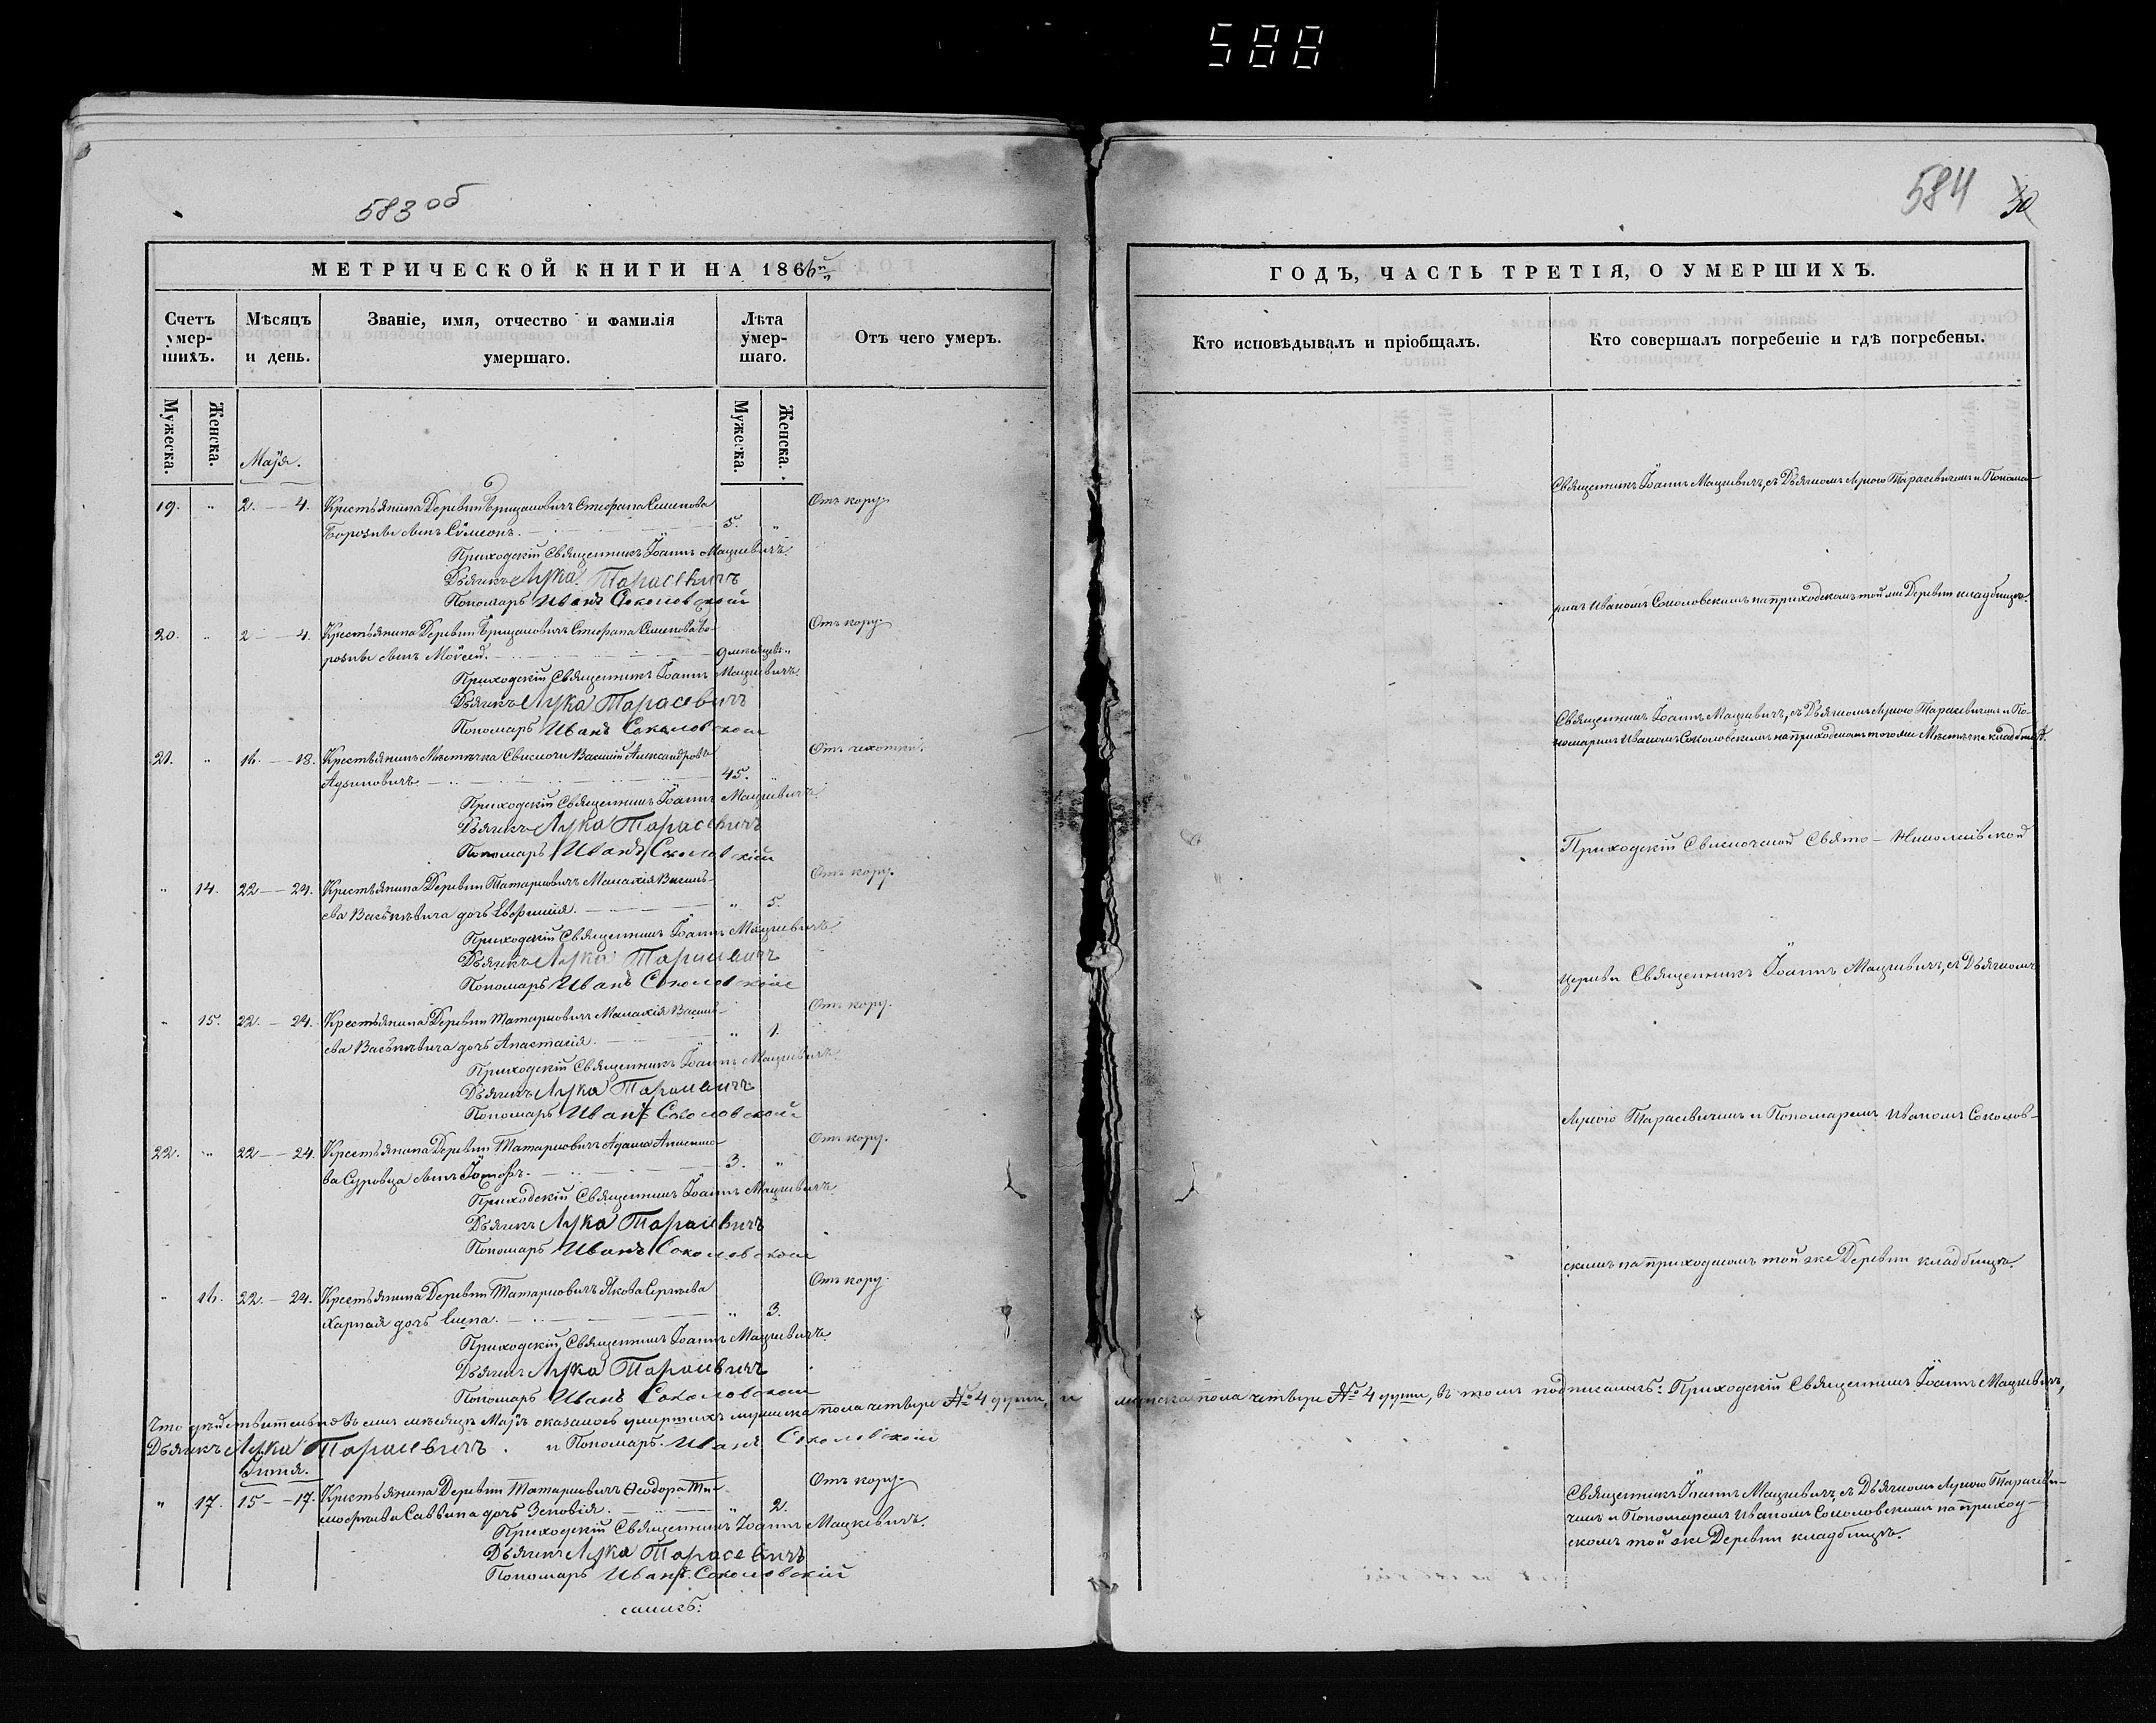 588
583 об
584 30
МЕТРИЧЕСКОЙ КНИГИ НА 1866й
Счетъ умер-
шихъ.
Мѣсяцъ
и день.
Званіе, имя, отчество и фамилія
умершаго.
Лѣта
умер-
шаго.
Отъ чего умеръ.
Мужеска.
Женска.
Мужеска.
Женска.
Маія.
19. " 2. — 4. Крестьянина Деревни Стефана Семенова Отъ кору.
сынъ Симеонъ. 5. "
Приходскій Священникъ Іоаннъ Мацкевичъ.
Дьячекъ Лука Тарасевичъ
Пономарь Иванъ Соколовскій
20. " 2 — 4. Крестьянина Деревни Стефана Семенова Отъ кору.
сынъ Моисей. 9 мѣсяцевъ "
Приходскій Священникъ Іоаннъ Мацкевичъ.
Дьячекъ Лука Тарасевичъ
Пономарь Иванъ Соколовскій
21. " 16. — 18. Крестьянинъ Мѣстечка Свислочи Василій Александровъ Отъ чахотки.
45. "
Приходскій Священникъ Іоаннъ Мацкевичъ.
Дьячекъ Лука Тарасевичъ
Пономарь Иванъ Соколовскій
" 14. 22 — 24. Крестьянина Деревни Татарковичъ Малахія Василь- Отъ кору.
ева дочь Евфимія. " 5.
Приходскій Священникъ Іоаннъ Мацкевичъ.
Дьячекъ Лука Тарасевичъ
Пономарь Иванъ Соколовскій
" 15. 22. — 24. Крестьянина Деревни Татарковичъ Малахія Василь- Отъ кору.
ева дочь Анастасія. " 1.
Приходскій Священникъ Іоаннъ Мацкевичъ.
Дьячекъ Лука Тарасевичъ
Пономарь Иванъ Соколовскій
22. " 22 — 24. Крестьянина Деревни Татарковичъ Адама Отъ кору.
сынъ Іосифъ. 3. "
Приходскій Священникъ Іоаннъ Мацкевичъ.
Дьячекъ Лука Тарасевичъ
Пономарь Иванъ Соколовскій
" 16. 22. — 24. Крестьянина Деревни Татарковичъ Якова Сергѣева Отъ кору.
дочь Елена. " 3.
Приходскій Священникъ Іоаннъ Мацкевичъ.
Дьячекъ Лука Тарасевичъ
Пономарь Иванъ Соколовскій
Что дѣйствительно въ семъ мѣсяцѣ Маіѣ оказалось умершихъ мужеска пола четыре № 4 души, и женска пола четыре № 4 души, въ томъ подписались: Приходскій Священникъ Іоаннъ Мацкевичъ,
Дьячекъ Лука Тарасевичъ. и Пономарь Иванъ Соколовскій
Іюня.
" 17. 15 — 17. Крестьянина Деревни Татарковичъ Ѳеодора Ти- Отъ кору.
моѳѣева Саввина дочь Зеновія. " 2.
Приходскій Священникъ Іоаннъ Мацкевичъ.
Дьячекъ Лука Тарасевичъ
Пономарь Иванъ Соколовскій
ГОДЪ, ЧАСТЬ ТРЕТІЯ, О УМЕРШИХЪ.
Кто исповѣдывалъ и пріобщалъ.
Кто совершалъ погребеніе и гдѣ погребены.
Священникъ Іоаннъ Мацкевичъ, съ Дьячкомъ Лукою Тарасевичемъ и Понома-
ремъ Иваномъ Соколовскимъ на приходскомъ той же Деревни кладбищѣ.
Священникъ Іоаннъ Мацкевичъ, съ Дьячкомъ Лукою Тарасевичемъ и По-
номаремъ Иваномъ Соколовскимъ на приходскомъ того же Мѣстечка кладбищѣ.
Приходскій Свислочской Свято-Николаевской
Церкви Священникъ Іоаннъ Мацкевичъ, съ Дьячкомъ
Лукою Тарасевичемъ и Пономаремъ Иваномъ Соколов-
скимъ на приходскомъ той же Деревни кладбищѣ.
Священникъ Іоаннъ Мацкевичъ съ Дьячкомъ Лукою Тарасеви-
чемъ и Пономаремъ Иваномъ Соколовскимъ на приход-
скомъ той же Деревни кладбищѣ.